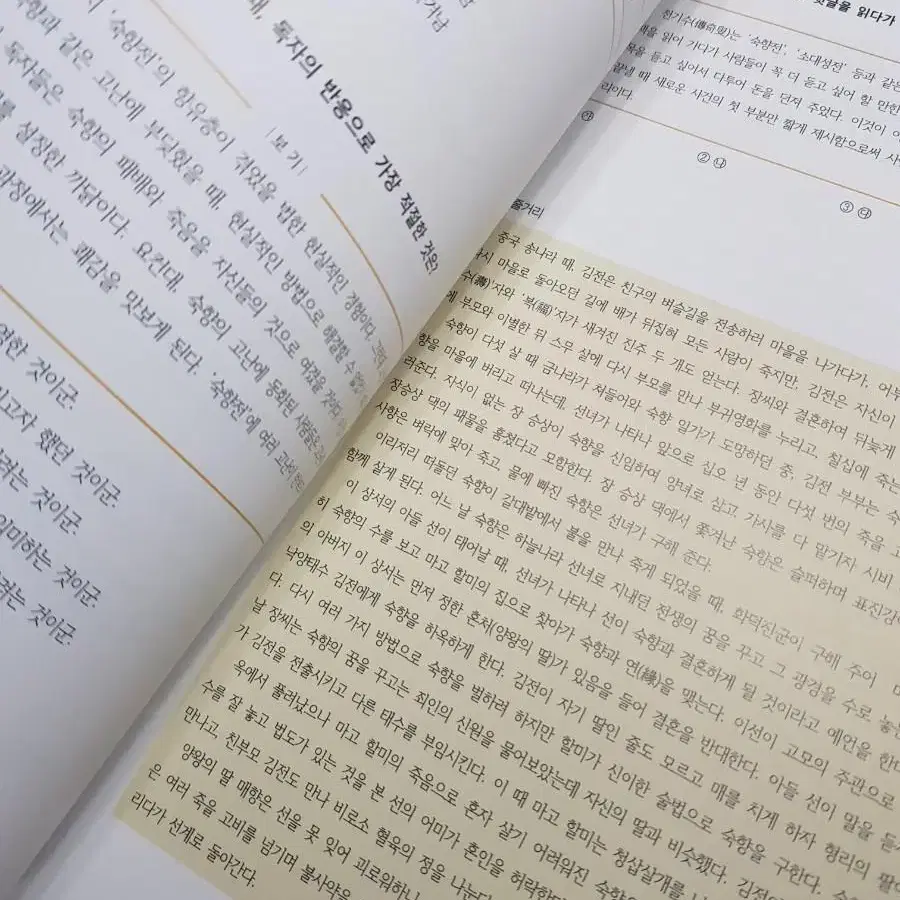 남
가남
때, 독자의 반응으로 가장 적절한 것은?
| 보 기 |
'숙향전'의 향유층이 겪었을 법한 현실적인 경험이다.
숙향과 같은 고난에 부딪혔을 때, 현실적인 방법으로 해결할 수 없
독자들은 숙향의 패배와 죽음을 자신들의 것으로 여겼을
를 설정한 까닭이다. 요컨대, 숙향의 고난에 동화된 사람들은
과정에서는 쾌감을 맛보게 된다. '숙향전'에 여러
영한 것이군.
리고자 했던 것이군.
려는 것이군.
의미하는 것이군.
려는 것이군.
옛날을 읽다가
전기수(傳奇叟)는 '숙향전', '소대성전' 등과 같은
을 읽어 가다가 사람들이 꼭 더 듣고 싶어 할 만한
목을 듣고 싶어서 다투어 돈을 던져 주었다. 이것이
끝낼 때 새로운 사건의 첫 부분만 짧게 제시함으로써
리이다.
① ㉮
② ㉯
③ ㉰
줄거리
중국 송나라 때, 김전은 친구의 벼슬길을 전송하러 마을을 나가다가, 어부
다시 마을로 돌아오던 길에 배가 뒤집혀 모든 사람이 죽지만, 김전은 자신이
수(壽)'자와 '복(福)'자가 새겨진 진주 두 개도 얻는다. 장씨와 결혼하여 뒤늦게
에 부모와 이별한 뒤 스무 살에 다시 부모를 만나 부귀영화를 누리고, 칠십에 죽는
숙향이 다섯 살 때 금나라가 쳐들어와 숙향 일가가 도망하던 중, 김전 부부는 숙
향을 마을에 버리고 떠나는데, 선녀가 나타나 앞으로 십오 년 동안 다섯 번의 죽을 고
려준다. 자식이 없는 장 승상이 숙향을 신임하여 양녀로 삼고 가사를 다 맡기자 시비
장승상 댁의 패물을 훔쳤다고 모함한다. 장 승상 댁에서 쫓겨난 숙향은 슬퍼하며 표진강에
사향은 벼락에 맞아 죽고, 물에 빠진 숙향은 선녀가 구해 준다.
이리저리 떠돌던 숙향이 갈대밭에서 불을 만나 죽게 되었을 때, 화덕진군이 구해 주어
함께 살게 된다. 어느 날 숙향은 하늘나라 선녀로 지내던 전생의 꿈을 꾸고 그 광경을 수로 놓는
이 상서의 아들 선이 태어날 때, 선녀가 나타나 선이 숙향과 결혼하게 될 것이라고 예언을 한다
히 숙향의 수를 보고 마고 할미의 집으로 찾아가 숙향과 연(緣)을 맺는다. 이선이 고모의 주관으로
의 아버지 이 상서는 먼저 정한 혼처(양왕의 딸)가 있음을 들어 결혼을 반대한다. 아들 선이 말을 듣지
낙양태수 김전에게 숙향을 하옥하게 한다. 김전이 자기 딸인 줄도 모르고 매를 치게 하자 형리의 팔이
다. 다시 여러 가지 방법으로 숙향을 벌하려 하지만 할미가 신이한 술법으로 숙향을 구한다.
날 장씨는 숙향의 꿈을 꾸고는 죄인의 신원을 물어보았는데 자신의 딸과 비슷했다. 김전이
가 김전을 전출시키고 다른 태수를 부임시킨다. 이 때 마고 할미는 청삽살개를
옥에서 풀려났으나 마고 할미의 죽음으로 혼자 살기 어려워진 숙향
수를 잘 놓고 법도가 있는 것을 본 선의 어미가 혼인을 허락한다
만나고, 친부모 김전도 만나 비로소 혈육의 정을 나눈다.
양왕의 딸 매향은 선을 못 잊어 괴로워하니
은 여러 죽을 고비를 넘기며 불사약을
리다가 선계로 돌아간다.